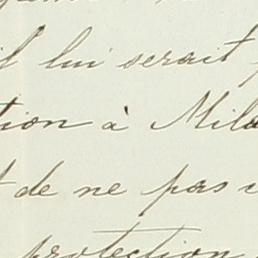 il lui serait
tion à Mila
t de ne pas
protection